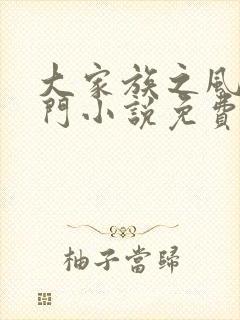 大家族之風
門小說免費
柚子當歸